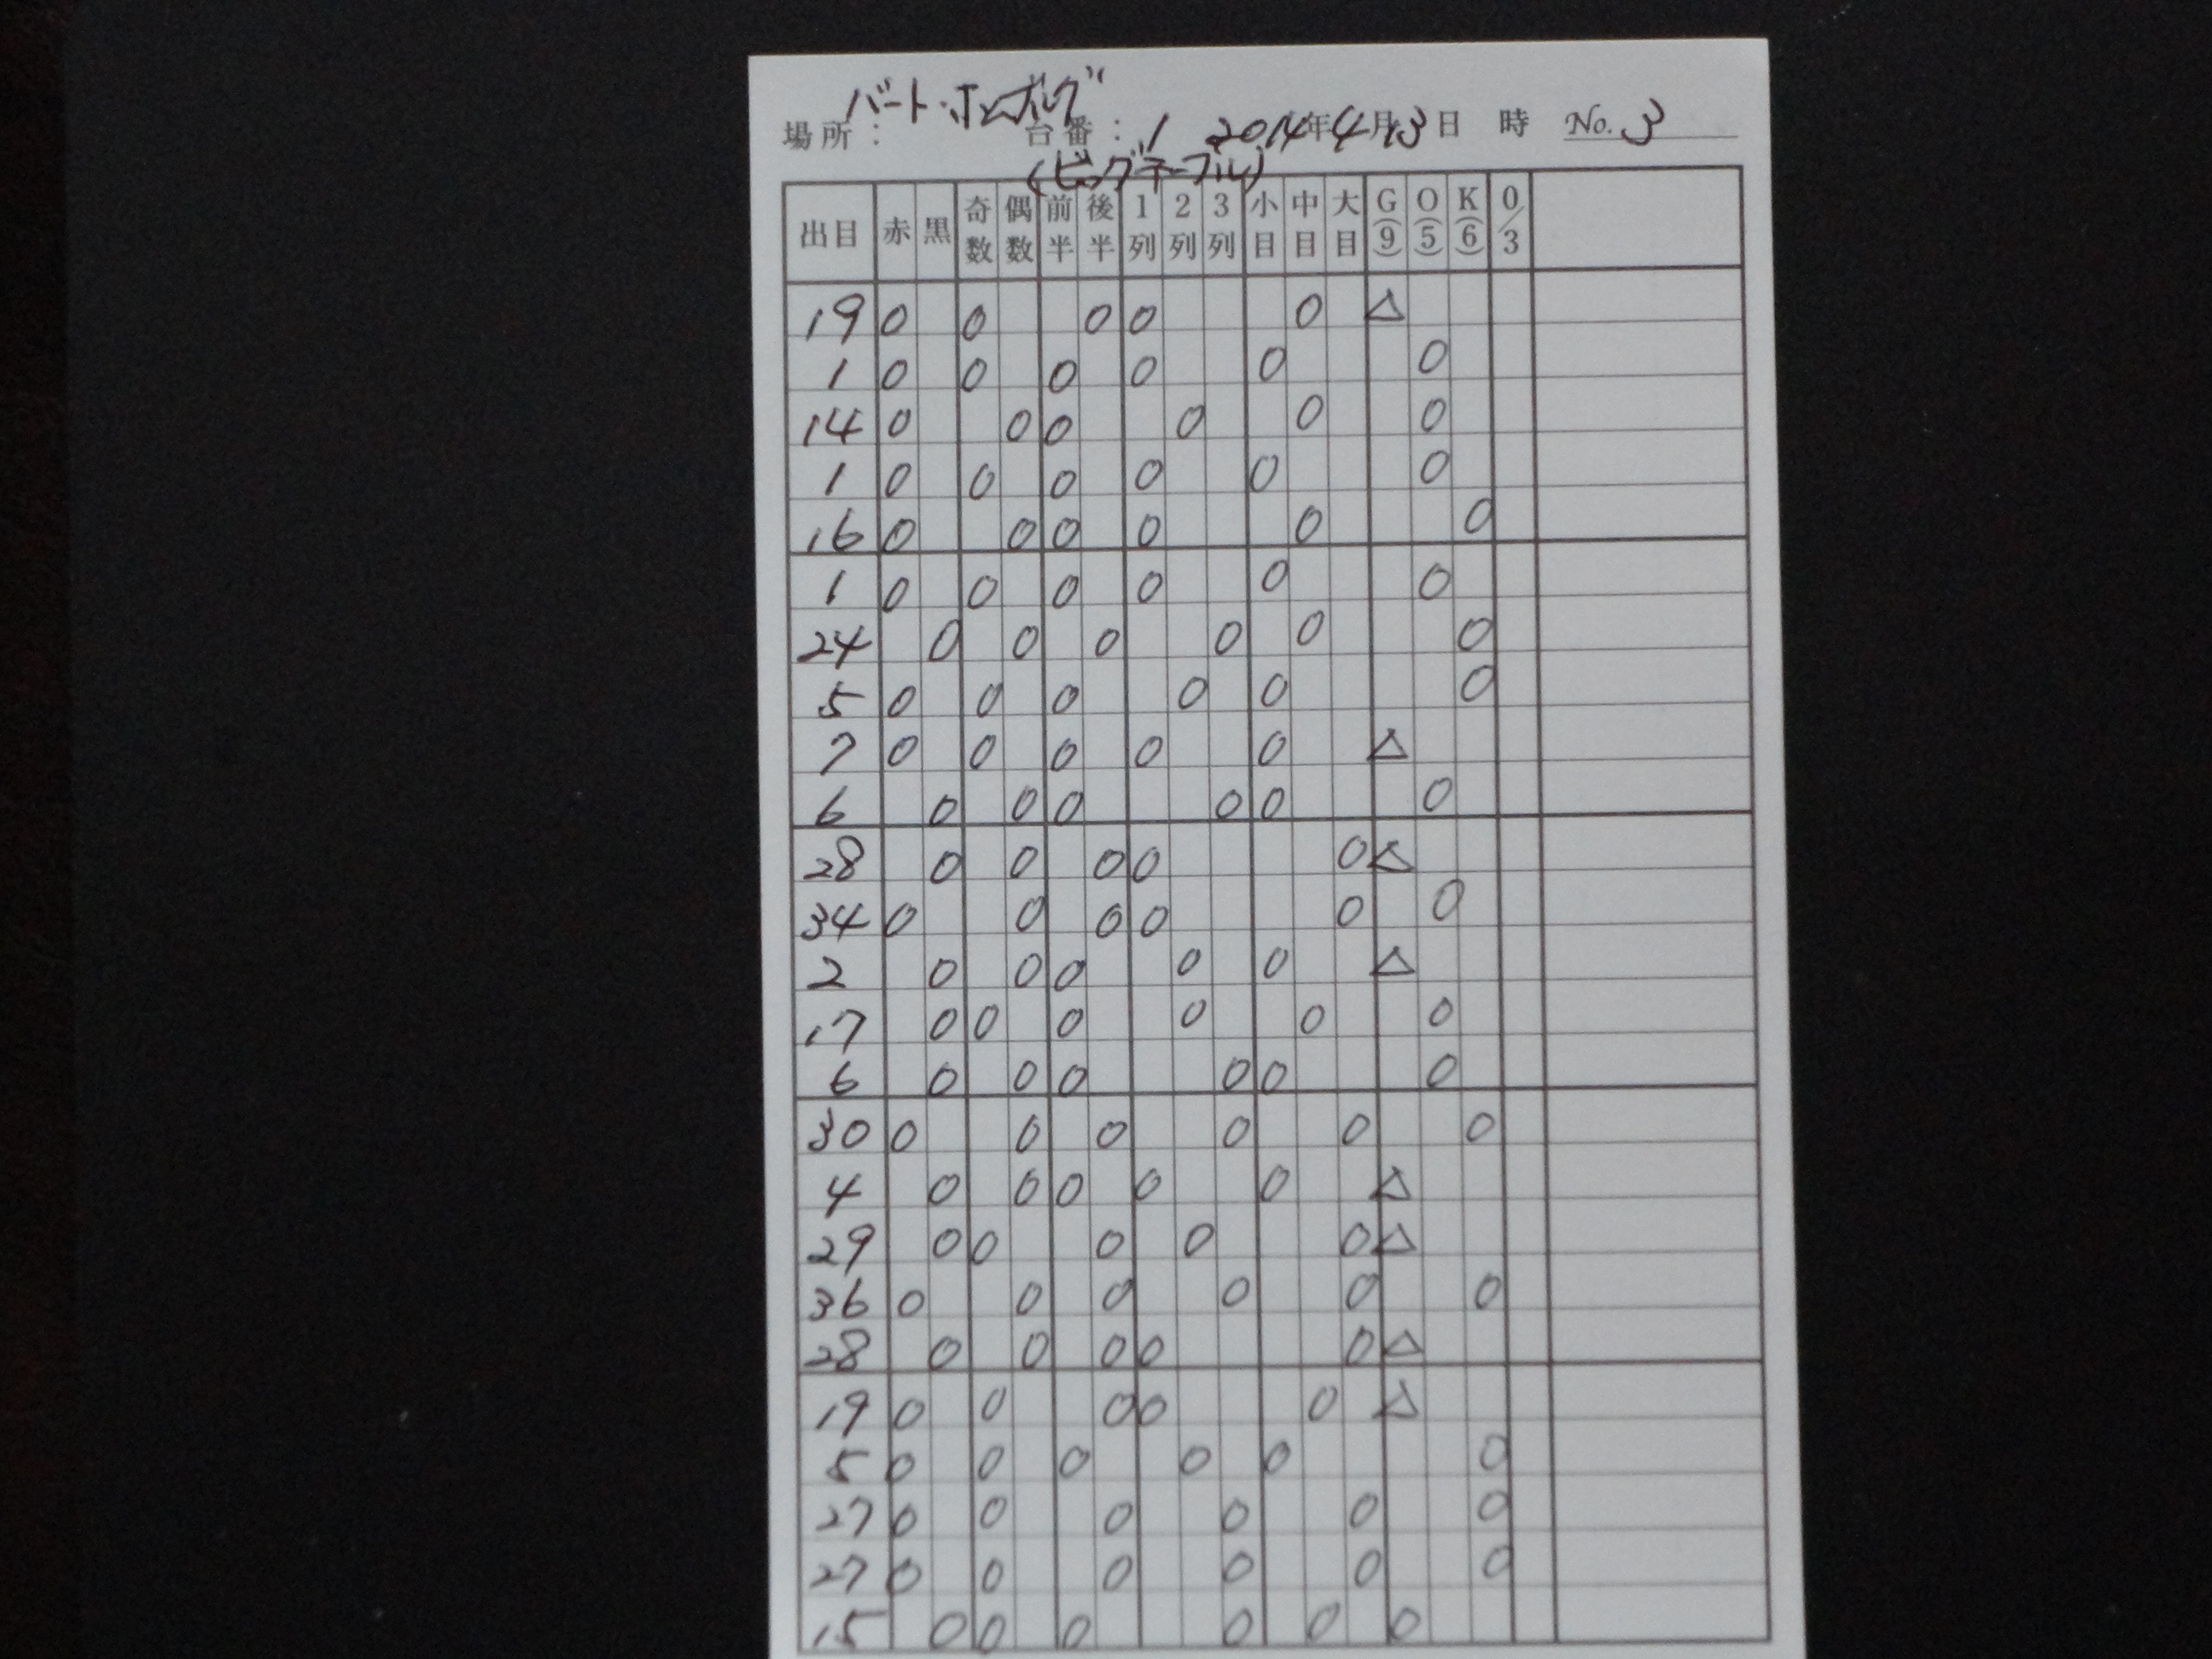 バート・ホンボルグ
場所： 台番：1 2014年4月13日 時 No. 3
(ビッグテーブル)
出目 赤 黒 奇数 偶数 前半 後半 1列 2列 3列 小目 中目 大目 G(9) O(5) K(6) 0/3
19 0 0 0 0 0 △
1 0 0 0 0 0 0
14 0 0 0 0 0 0
1 0 0 0 0 0 0
16 0 0 0 0 0 0
1 0 0 0 0 0 0
24 0 0 0 0 0 0
5 0 0 0 0 0 0
7 0 0 0 0 0 △
6 0 0 0 0 0 0
28 0 0 0 0 0 △
34 0 0 0 0 0 0
2 0 0 0 0 0 △
17 0 0 0 0 0 0
6 0 0 0 0 0 0
30 0 0 0 0 0 0
4 0 0 0 0 0 △
29 0 0 0 0 0 △
36 0 0 0 0 0 0
28 0 0 0 0 0 △
19 0 0 0 0 0 △
5 0 0 0 0 0 0
27 0 0 0 0 0 0
27 0 0 0 0 0 0
15 0 0 0 0 0 0